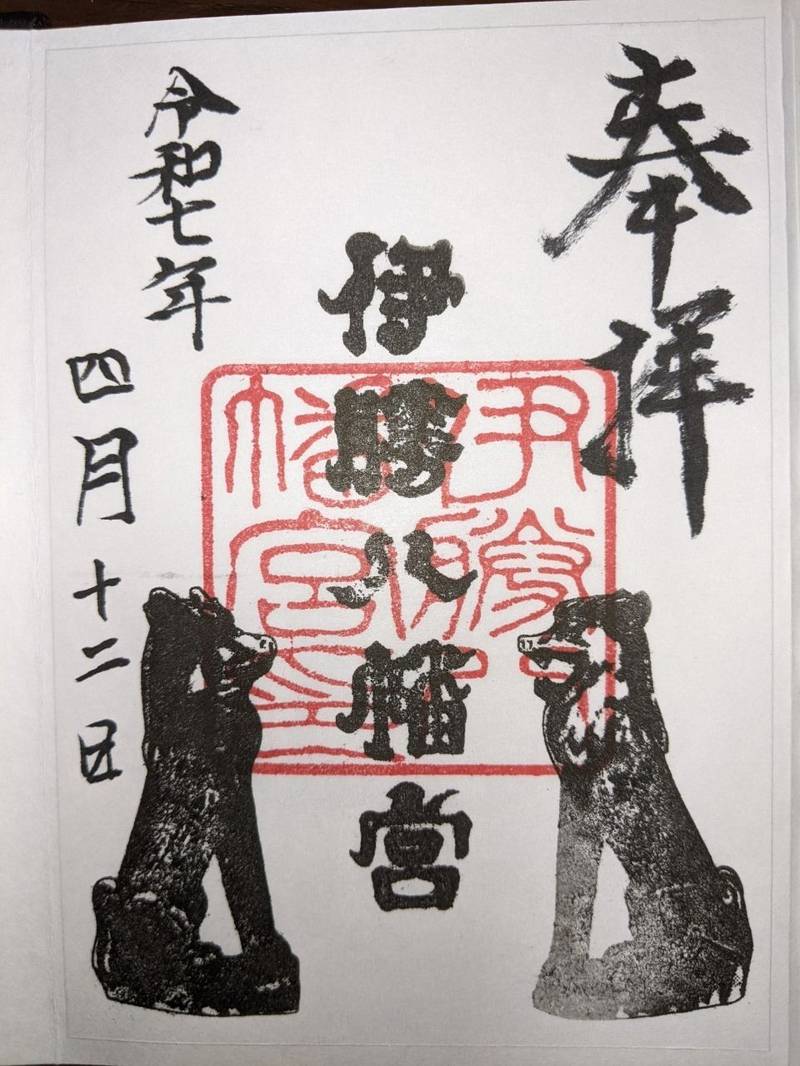 奉拝
伊勝八幡宮
伊勝八幡宮印
令和七年
四月十二日